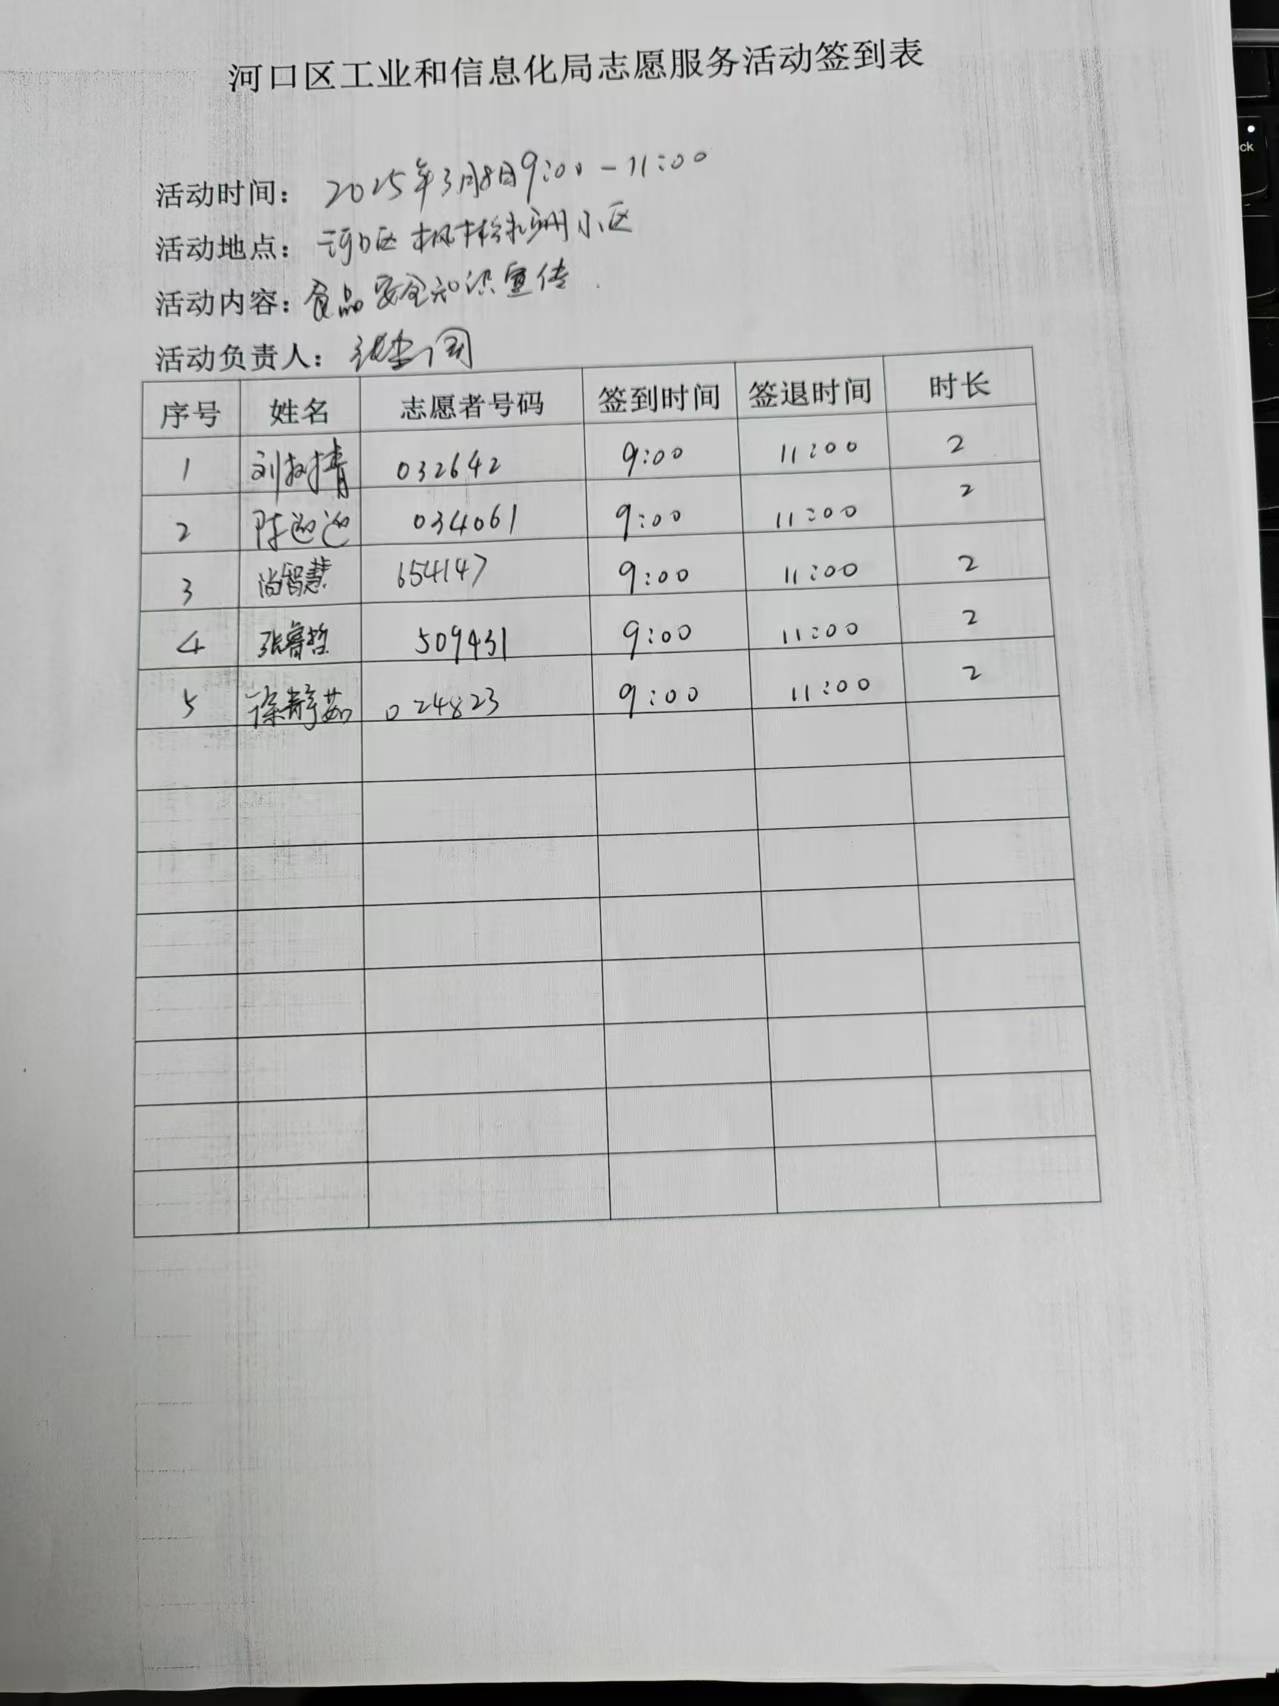 河口区工业和信息化局志愿服务活动签到表
活动时间： 2025年3月8日9:00-11:00
活动地点： 河口区 小区
活动内容：食品安全知识宣传.
活动负责人：
序号 姓名 志愿者号码 签到时间 签退时间 时长
1 刘树措 032642 9:00 11:00 2
2 陈迎迎 034061 9:00 11:00 2
3 尚智慧 654147 9:00 11:00 2
4 张睿哲 509431 9:00 11:00 2
5 徐静茹 024823 9:00 11:00 2
ck